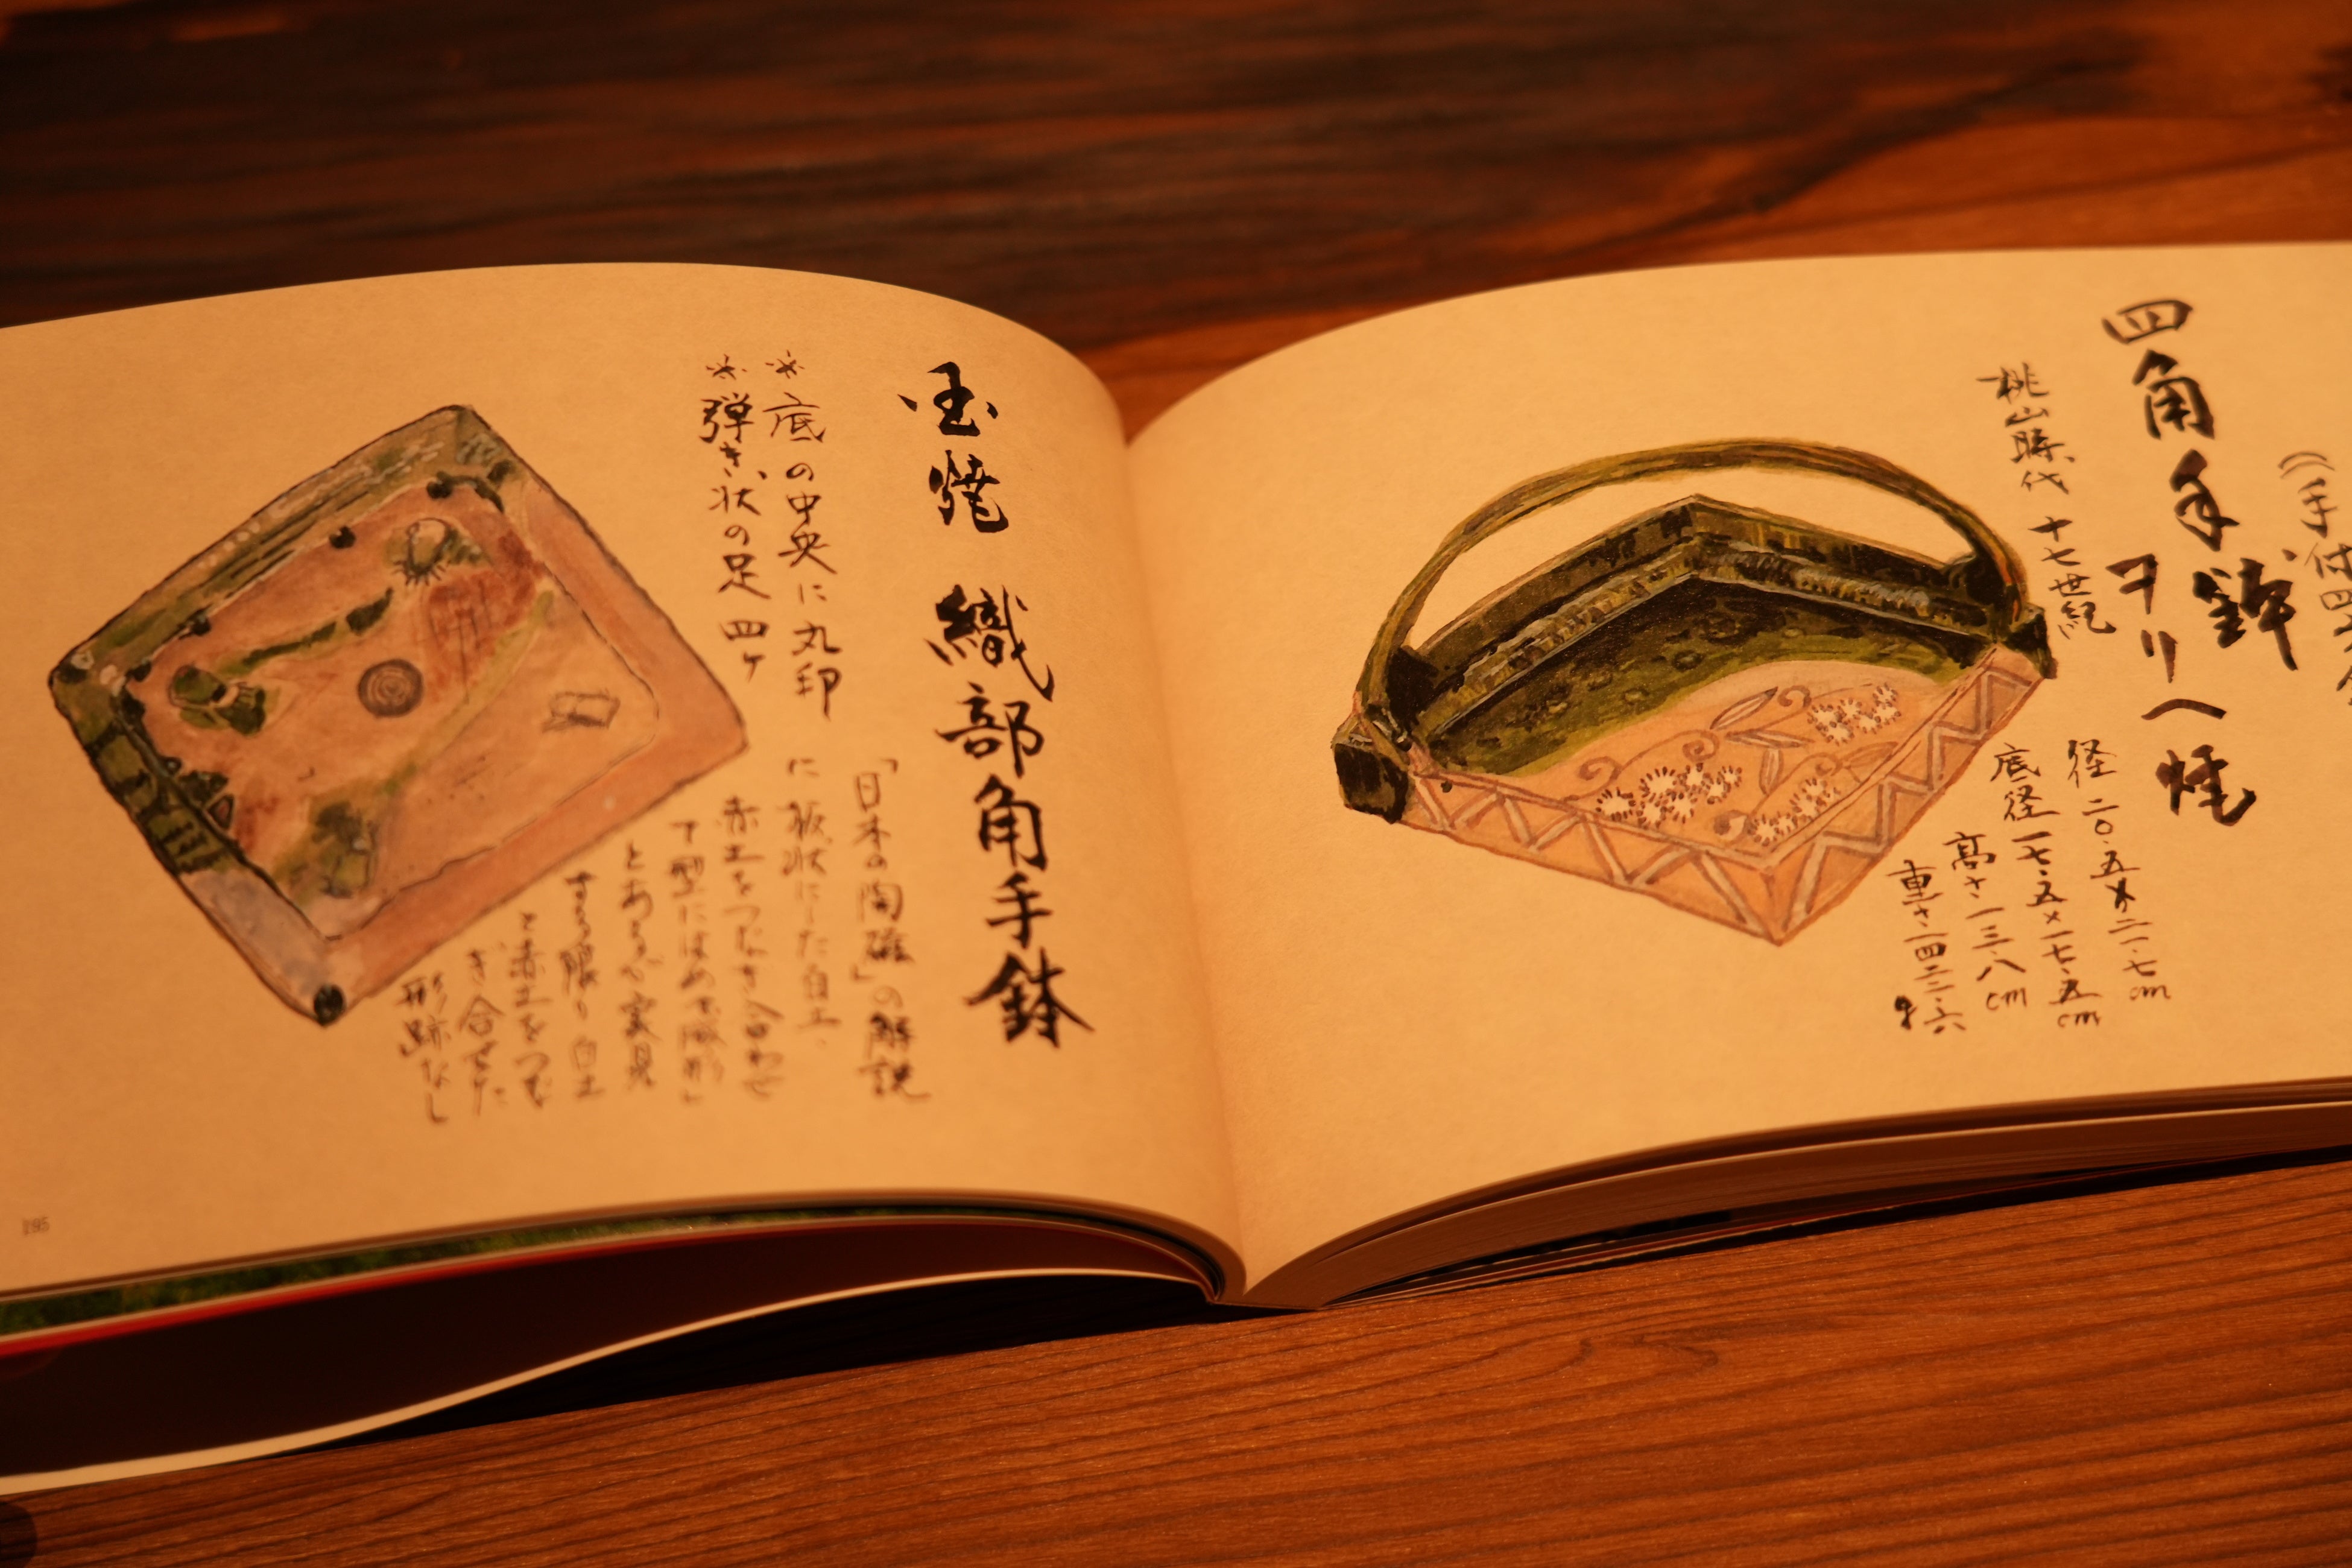 (手付四
四角手鉢
ヲリヘ焼
桃山時代 十七世紀
径 二〇.五×二一.七cm
底径一七.五×一七.五cm
高さ一三.八cm
重さ一四二三.六
国焼 織部角手鉢
*底の中央に丸印
*弾き状の足 四ヶ
「日本の陶磁」の解説
に板状にした白土、
赤土をつなぎ合わせ
て型にはめて成形」
とあるが実見
する限り白土
と赤土をつな
ぎ合せた
形跡なし
195